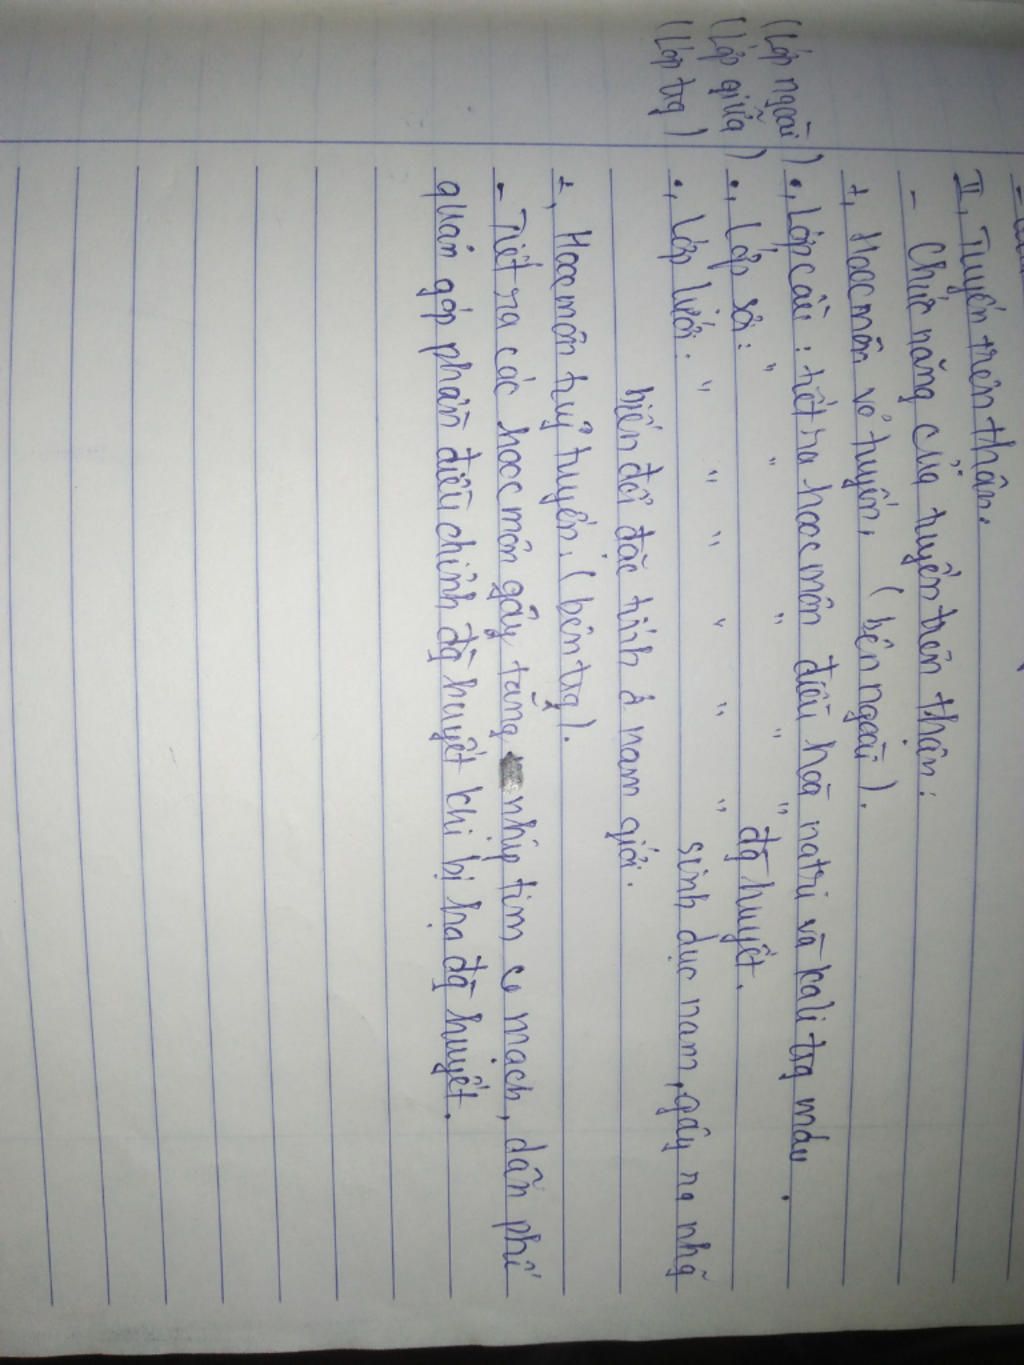 II, Tuyến trên thận.
- Chức năng của tuyến trên thận:
+, Hoocmôn vỏ tuyến, (bên ngoài).
(Lớp ngoài) •, Lớp cầu: tiết ra hoocmôn điều hoà natri và kali trg máu.
(Lớp giữa) •, Lớp sợi: " " " " " đg huyết.
(Lớp trg) •, Lớp lưới: " " " " " " sinh dục nam, gây ra nhg
biến đổi đặc tính ở nam giới.
+, Hoocmôn tuỷ tuyến. (bên trg).
- Tiết ra các hoocmôn gây tăng nhịp tim co mạch, dãn phế
quản góp phần điều chỉnh đg huyết khi bị hạ đg huyết.